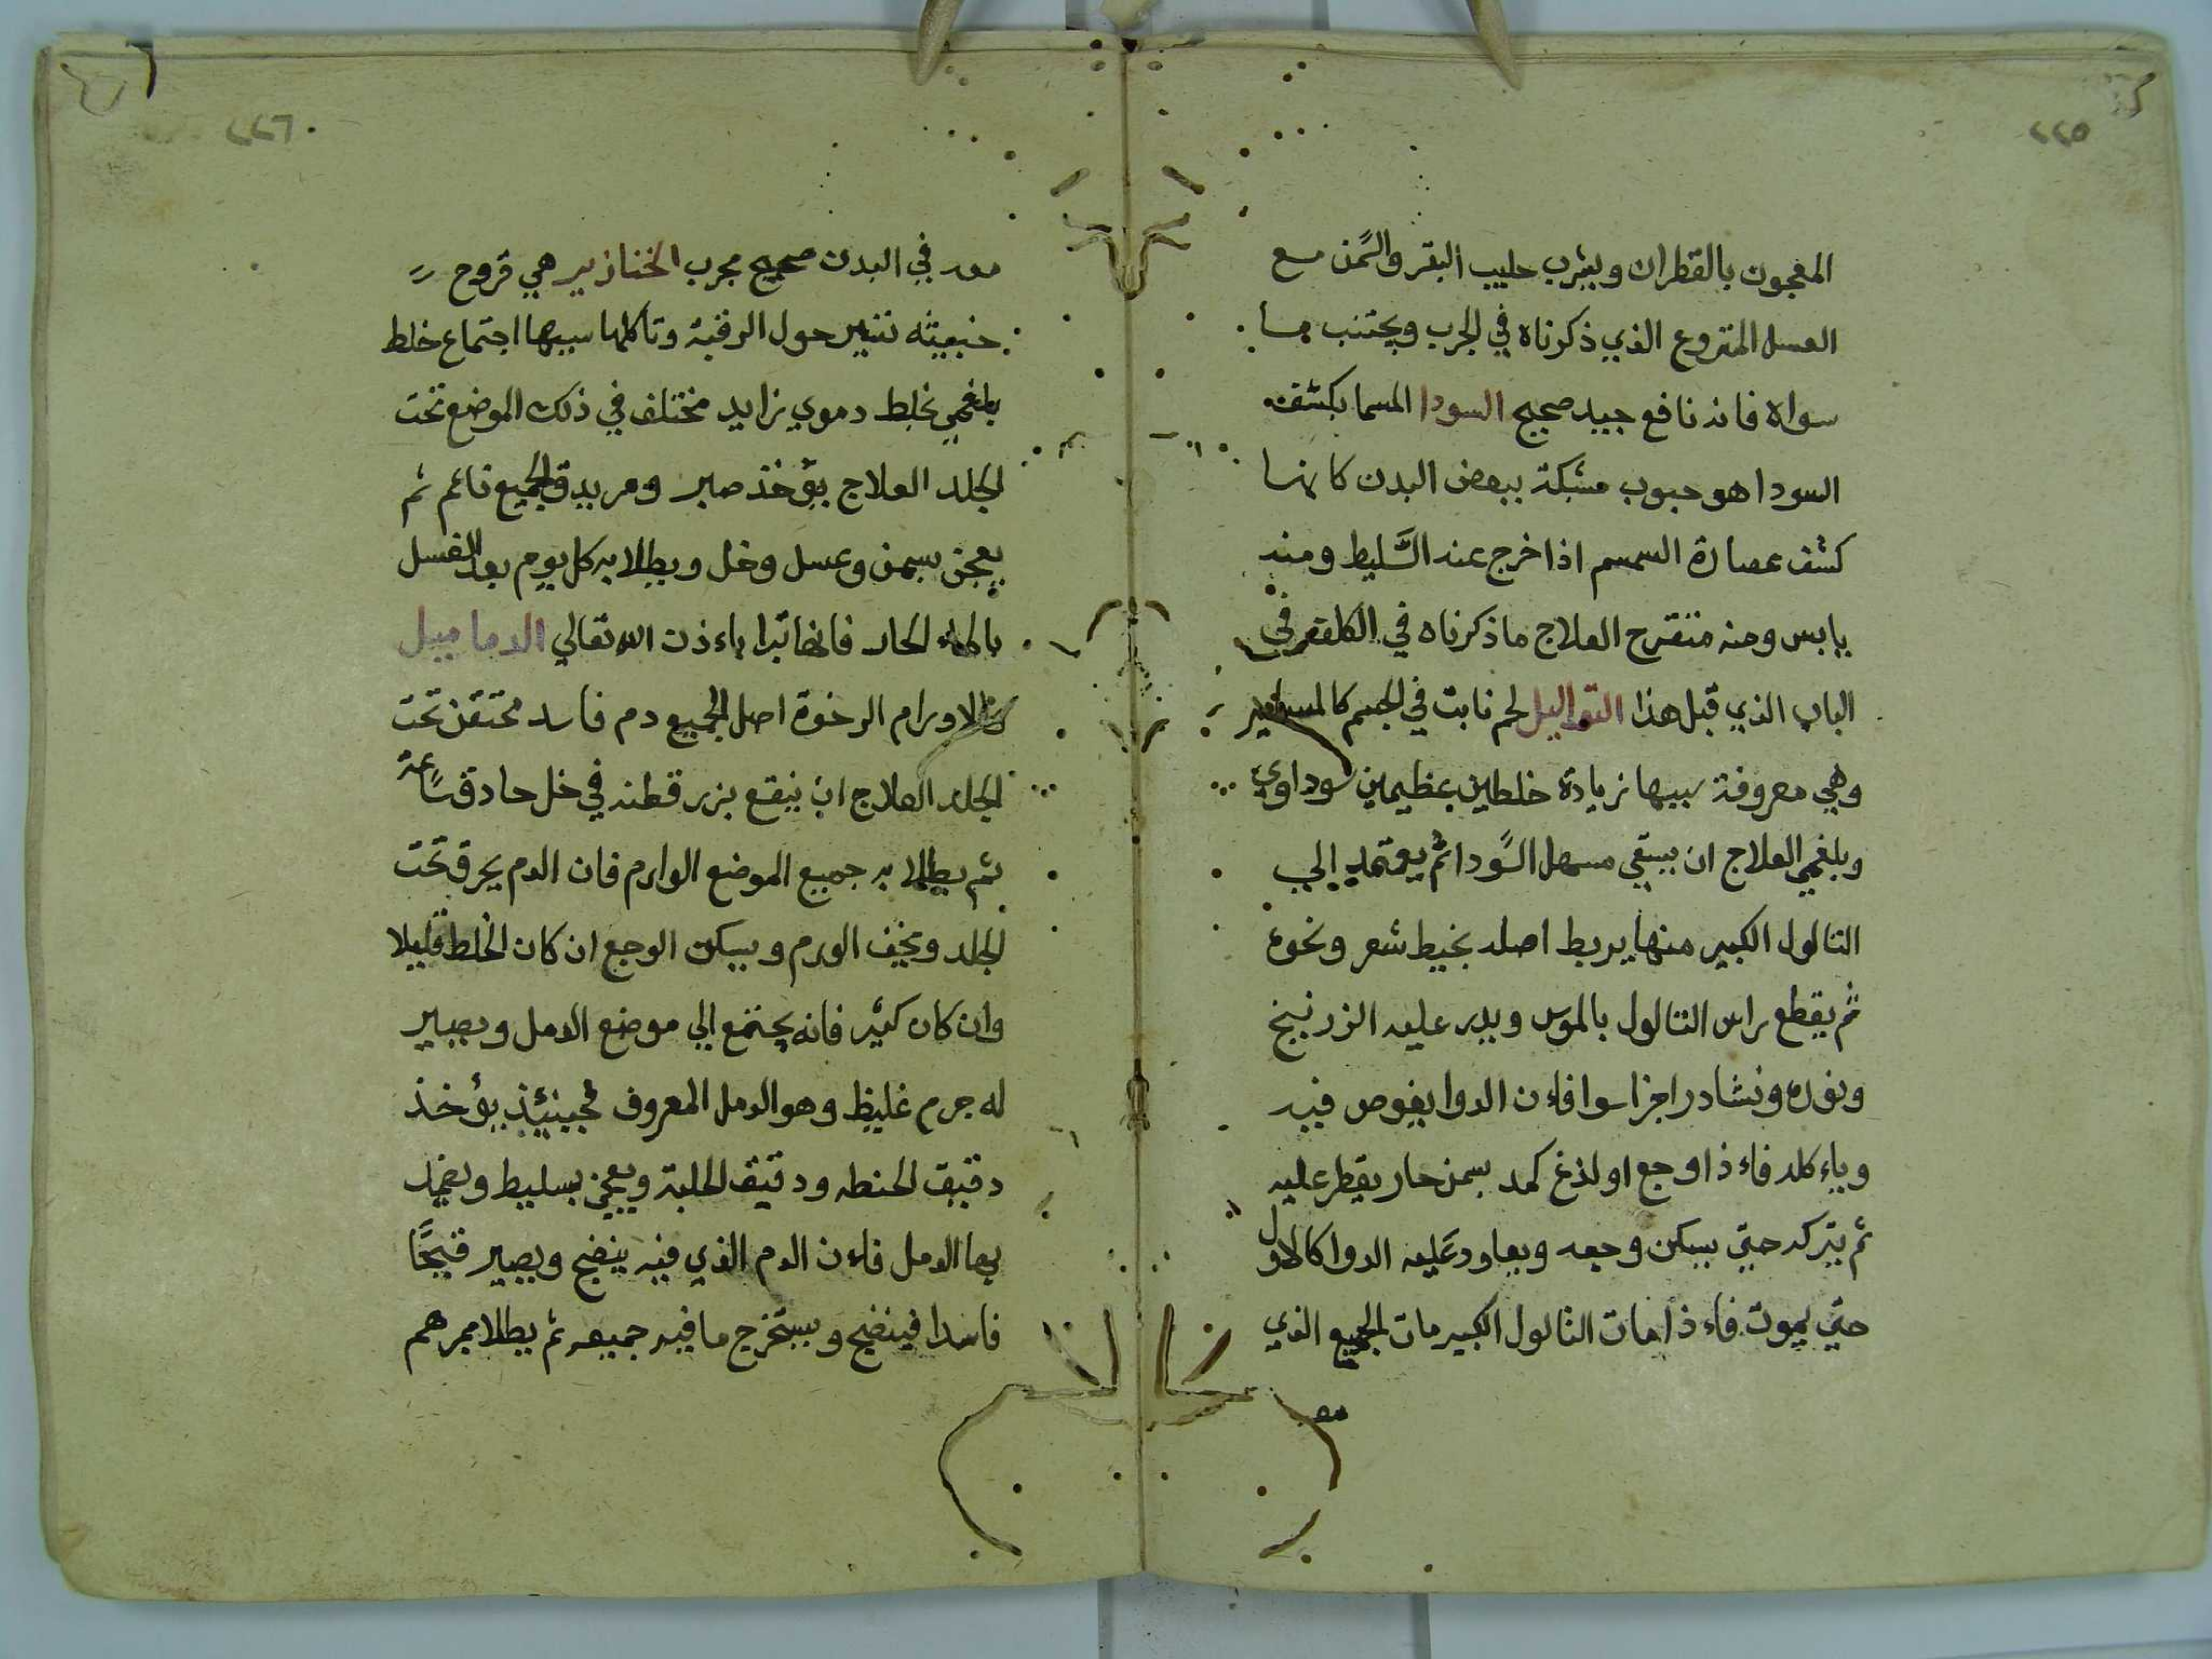 ٢٢٥
المعجون بالقطران ويشرب حليب البقر والسمن مع
العسل المنزوع الذي ذكرناه في الجرب ويجتنب ما
سواه فانه نافع جيد صحيح السودا المسما بكشفه
السودا هو حبوب مشبكة ببعض البدن كانها
كشف عصارة السمسم اذا خرج عند السَّليط ومنه
يابس ومنه متقرح العلاج ما ذكرناه في الكلف في
الباب الذي قبل هذا التواليل لحم نابت في الجسم كالمسامير
وهي معروفة سببها زيادة خلطين عظيمين سوداوي
وبلغمي العلاج ان يسقى مسهل السَّودا ثم يعتمد الي
الثالول الكبير منها يربط اصله بخيط شعر ونحوه
ثم يقطع راس الثالول بالموس ويدر عليه الزرنيخ
ونوره ونشادر اجزا سوا فاءن الدوا يغوص فيه
وياءكله فاءذا وجع او لذغ كمد بسمن حار يقطر عليه
ثم يتركه حتي يسكن وجعه ويعاود عليه الدوا كالاول
حتي يموت فاءذا مات الثالول الكبير مات الجميع الذي
معه
٢٢٦
معه في البدن صحيح مجرب الخنازير هي قروح
خبيثه تثير حول الرقبة وتاكلها سببها اجتماع خلط
بلغمي بخلط دموي زايد مختلف في ذلك الموضع تحت
الجلد العلاج يؤخذ صبر ومر يدق الجميع ناعم ثم
يعجن بسمن وعسل وخل ويطلا به كل يوم بعد الغسل
بالماء الحار فانها تبرا باءذن الله تعالي الدماميل
كالاورام الرخوة اصل الجميع دم فاسد محتقن تحت
الجلد العلاج ان ينقع بزر قطنه في خل حادق ساعة
ثم يطلا به جميع الموضع الوارم فان الدم يحرق تحت
الجلد ويخف الورم ويسكن الوجع ان كان الخلط قليلا
وان كان كثير فانه يجتمع الي موضع الدمل ويصير
له جرم غليظ وهو الدمل المعروف فحينئذ يؤخذ
دقيق الحنطه ودقيق الحلبة ويعجن بسليط ويضمد
بها الدمل فاءن الدم الذي فيه ينضج ويصير قيحًا
فاسدا فينضح ويستخرج ما فيه جميعه ثم يطلا بمرهم